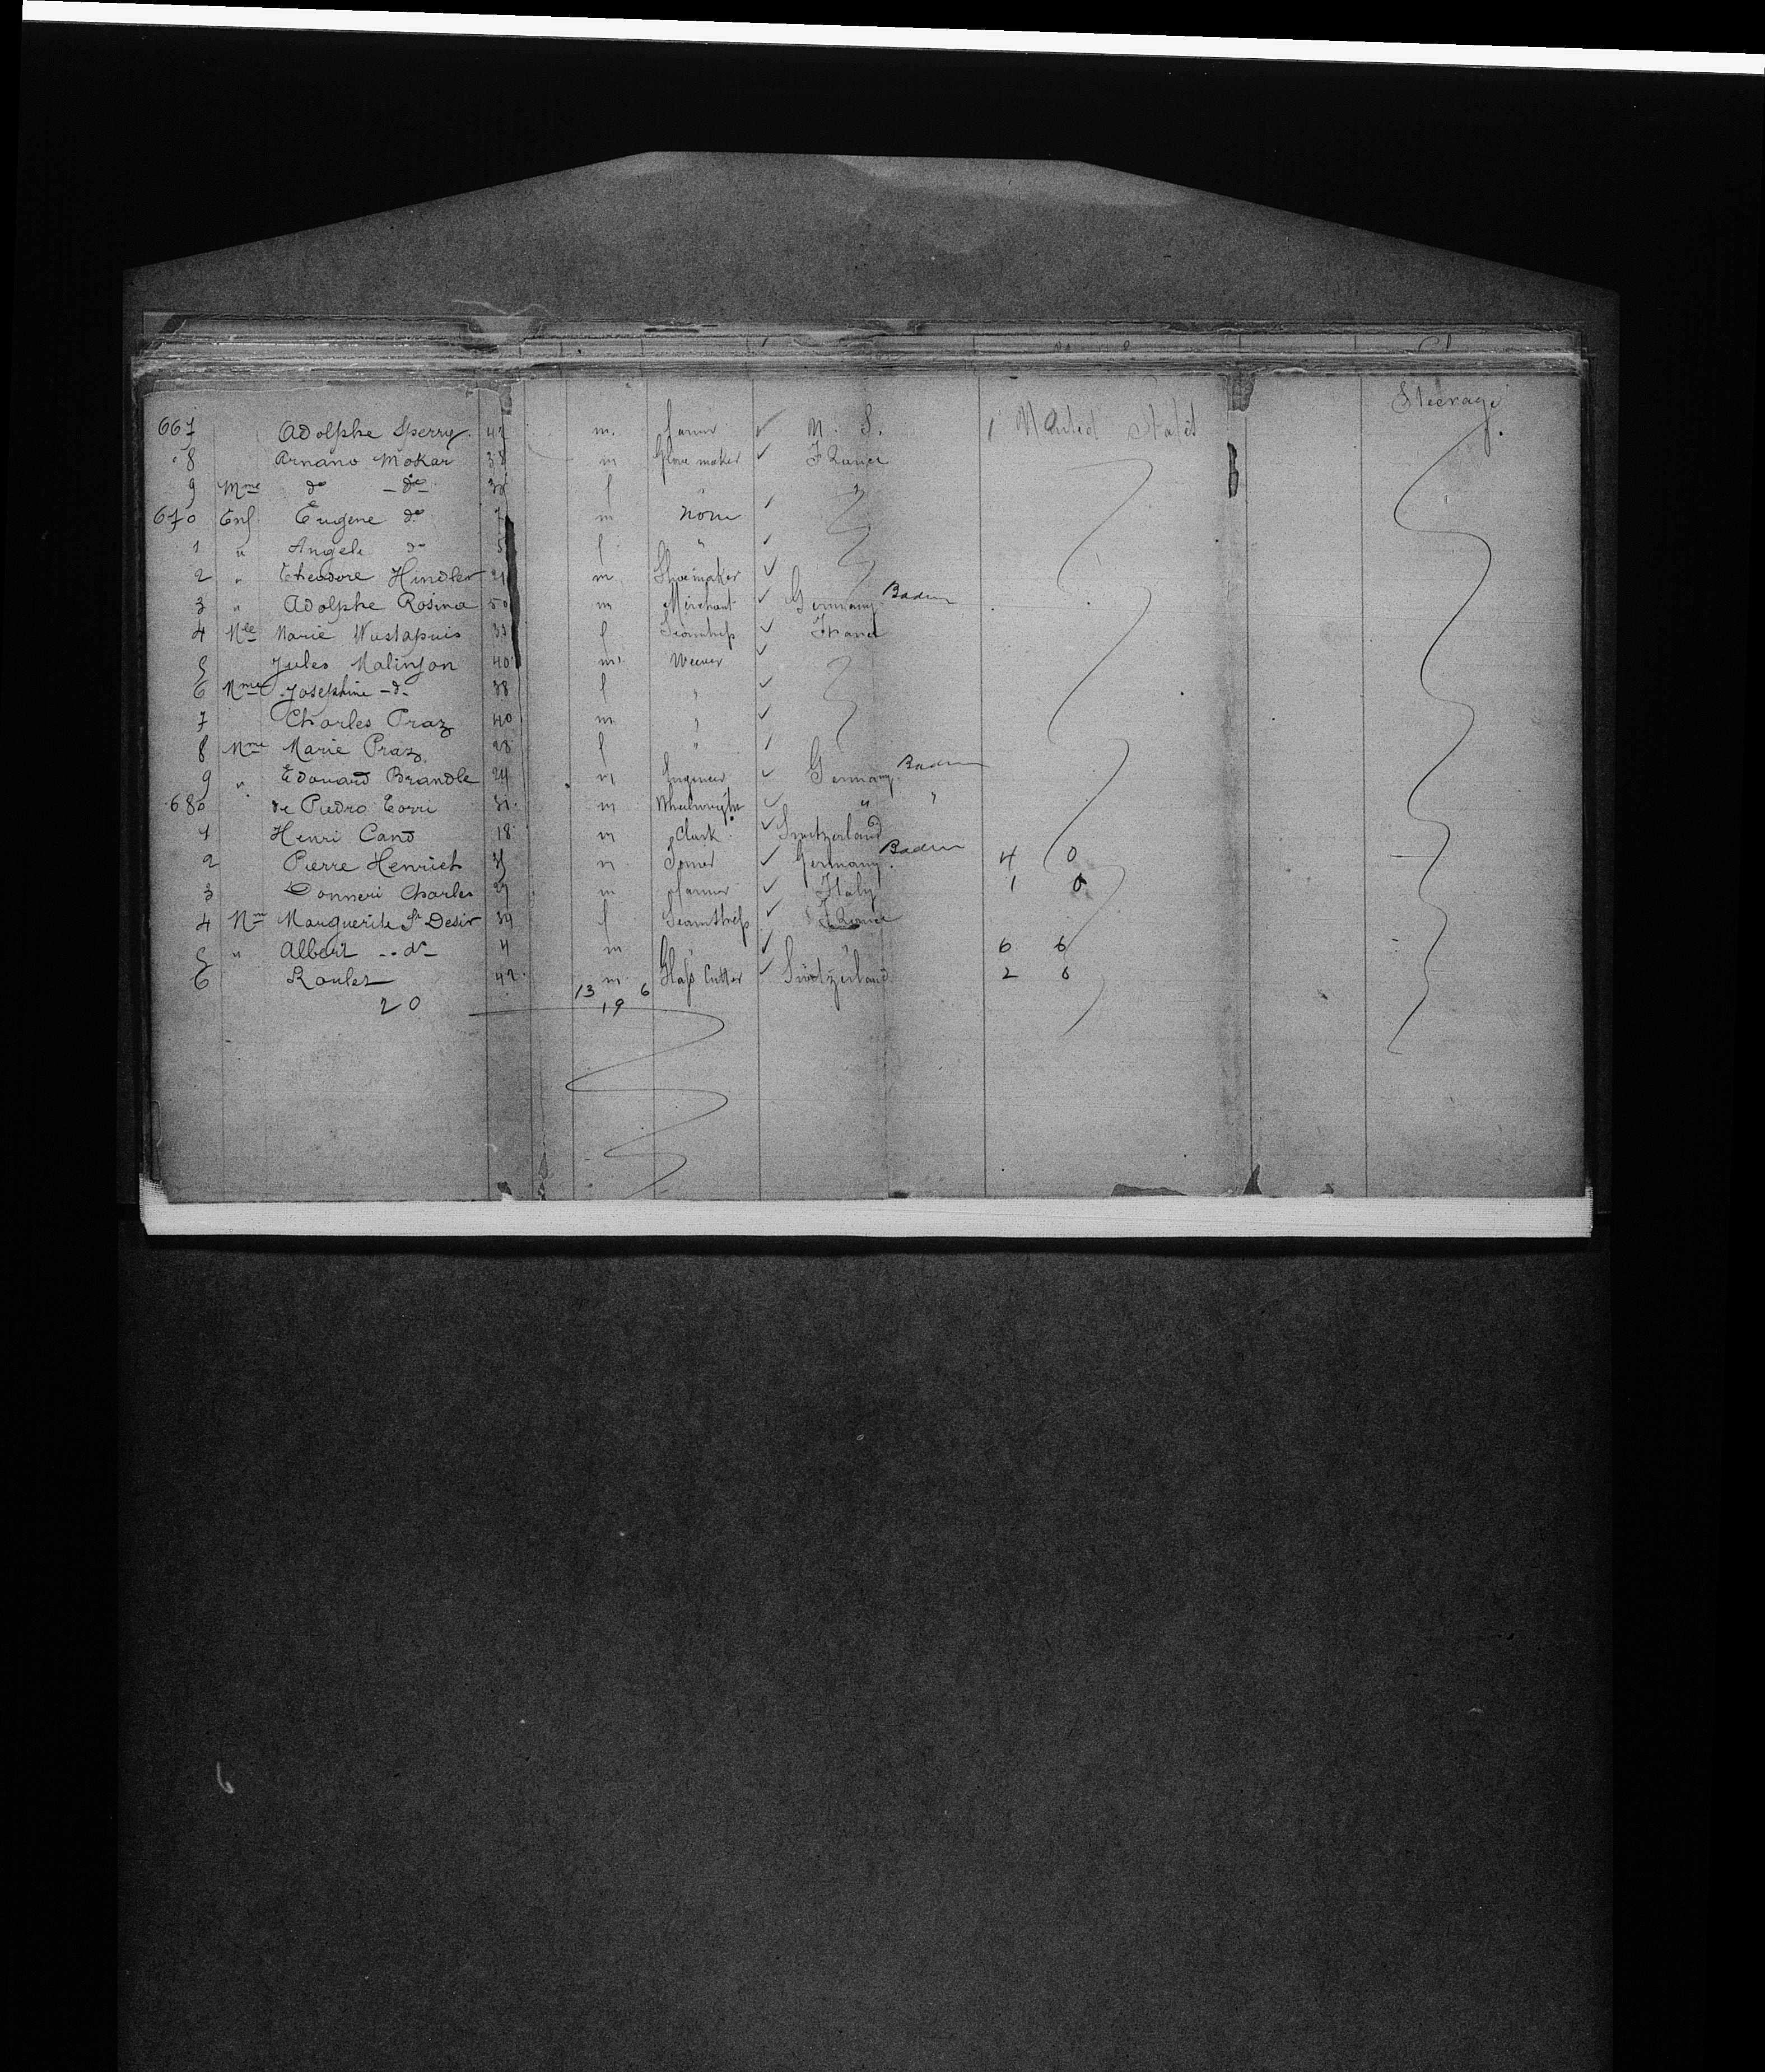 Steerage
667 Adolphe Sperry 42 m. farmer ✓ U. S. United States
8 Arnano Mokar 38 m Glove maker ✓ France
9 Mme do - do - f "
670 Enf Eugene do 7 m none ✓
1 " Angele do 5 f " ✓
2 " Theodore Hindler 21 m Shoemaker ✓
3 " Adolphe Rosina 50 m Merchant ✓ Germany Baden
4 Mlle Marie Wustapuis 33 f Seamstress ✓ France
5 Jules Malinjon 40 m. Weaver ✓
6 Mme Josephine - d - 38 f " ✓
7 Charles Praz 40 m " ✓
8 Mme Marie Praz 28 f " ✓
9 " Edouard Brandle 24 m Engineer ✓ Germany Baden
680 de Piedro Torri 31 m Wheelwright ✓ " "
1 Henri Cand 18 m Clerk ✓ Switzerland
2 Pierre Henrich m ✓ Germany Baden 4 0
3 Donneri Charles 27 m farmer ✓ Italy 1 0
4 Mme Marguerite St Desir 34 f Seamstress ✓ France
5 " Albert - do - 4 m " ✓ " 6 6
6 Roulet 42 m Glass Cutter ✓ Switzerland 2 0
20 13 6
19